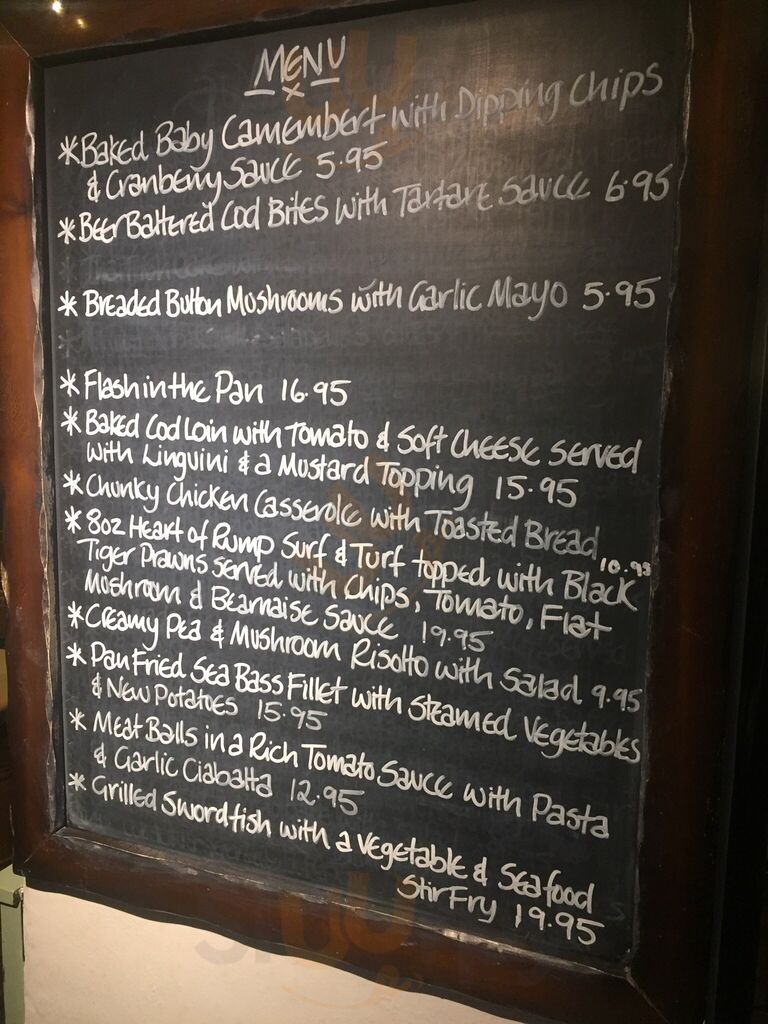 MENU
x
* Baked Baby Camembert with Dipping Chips
& Cranberry Sauce 5.95
* Beer Battered Cod Bites with Tartare Sauce 6.95
* Breaded Button Moshrooms with Garlic Mayo 5.95
* Flash in the Pan 16.95
* Baked Cod Loin with Tomato & Soft Cheese served
with Linguini & a Mustard Topping 15.95
* Chunky Chicken Casserole with Toasted Bread 10.95
* 8oz Heart of Rump Surf & Turf topped with Black
Tiger Prawns served with Chips, Tomato, Flat
Moshroom & Bearnaise Sauce 19.95
* Creamy Pea & Mushroom Risotto with Salad 9.95
* Pan Fried Sea Bass Fillet with Steamed Vegetables
& New Potatoes 15.95
* Meat Balls in a Rich Tomato Sauce with Pasta
& Garlic Ciabatta 12.95
* Grilled Swordfish with a Vegetable & Seafood
Stir Fry 19.95